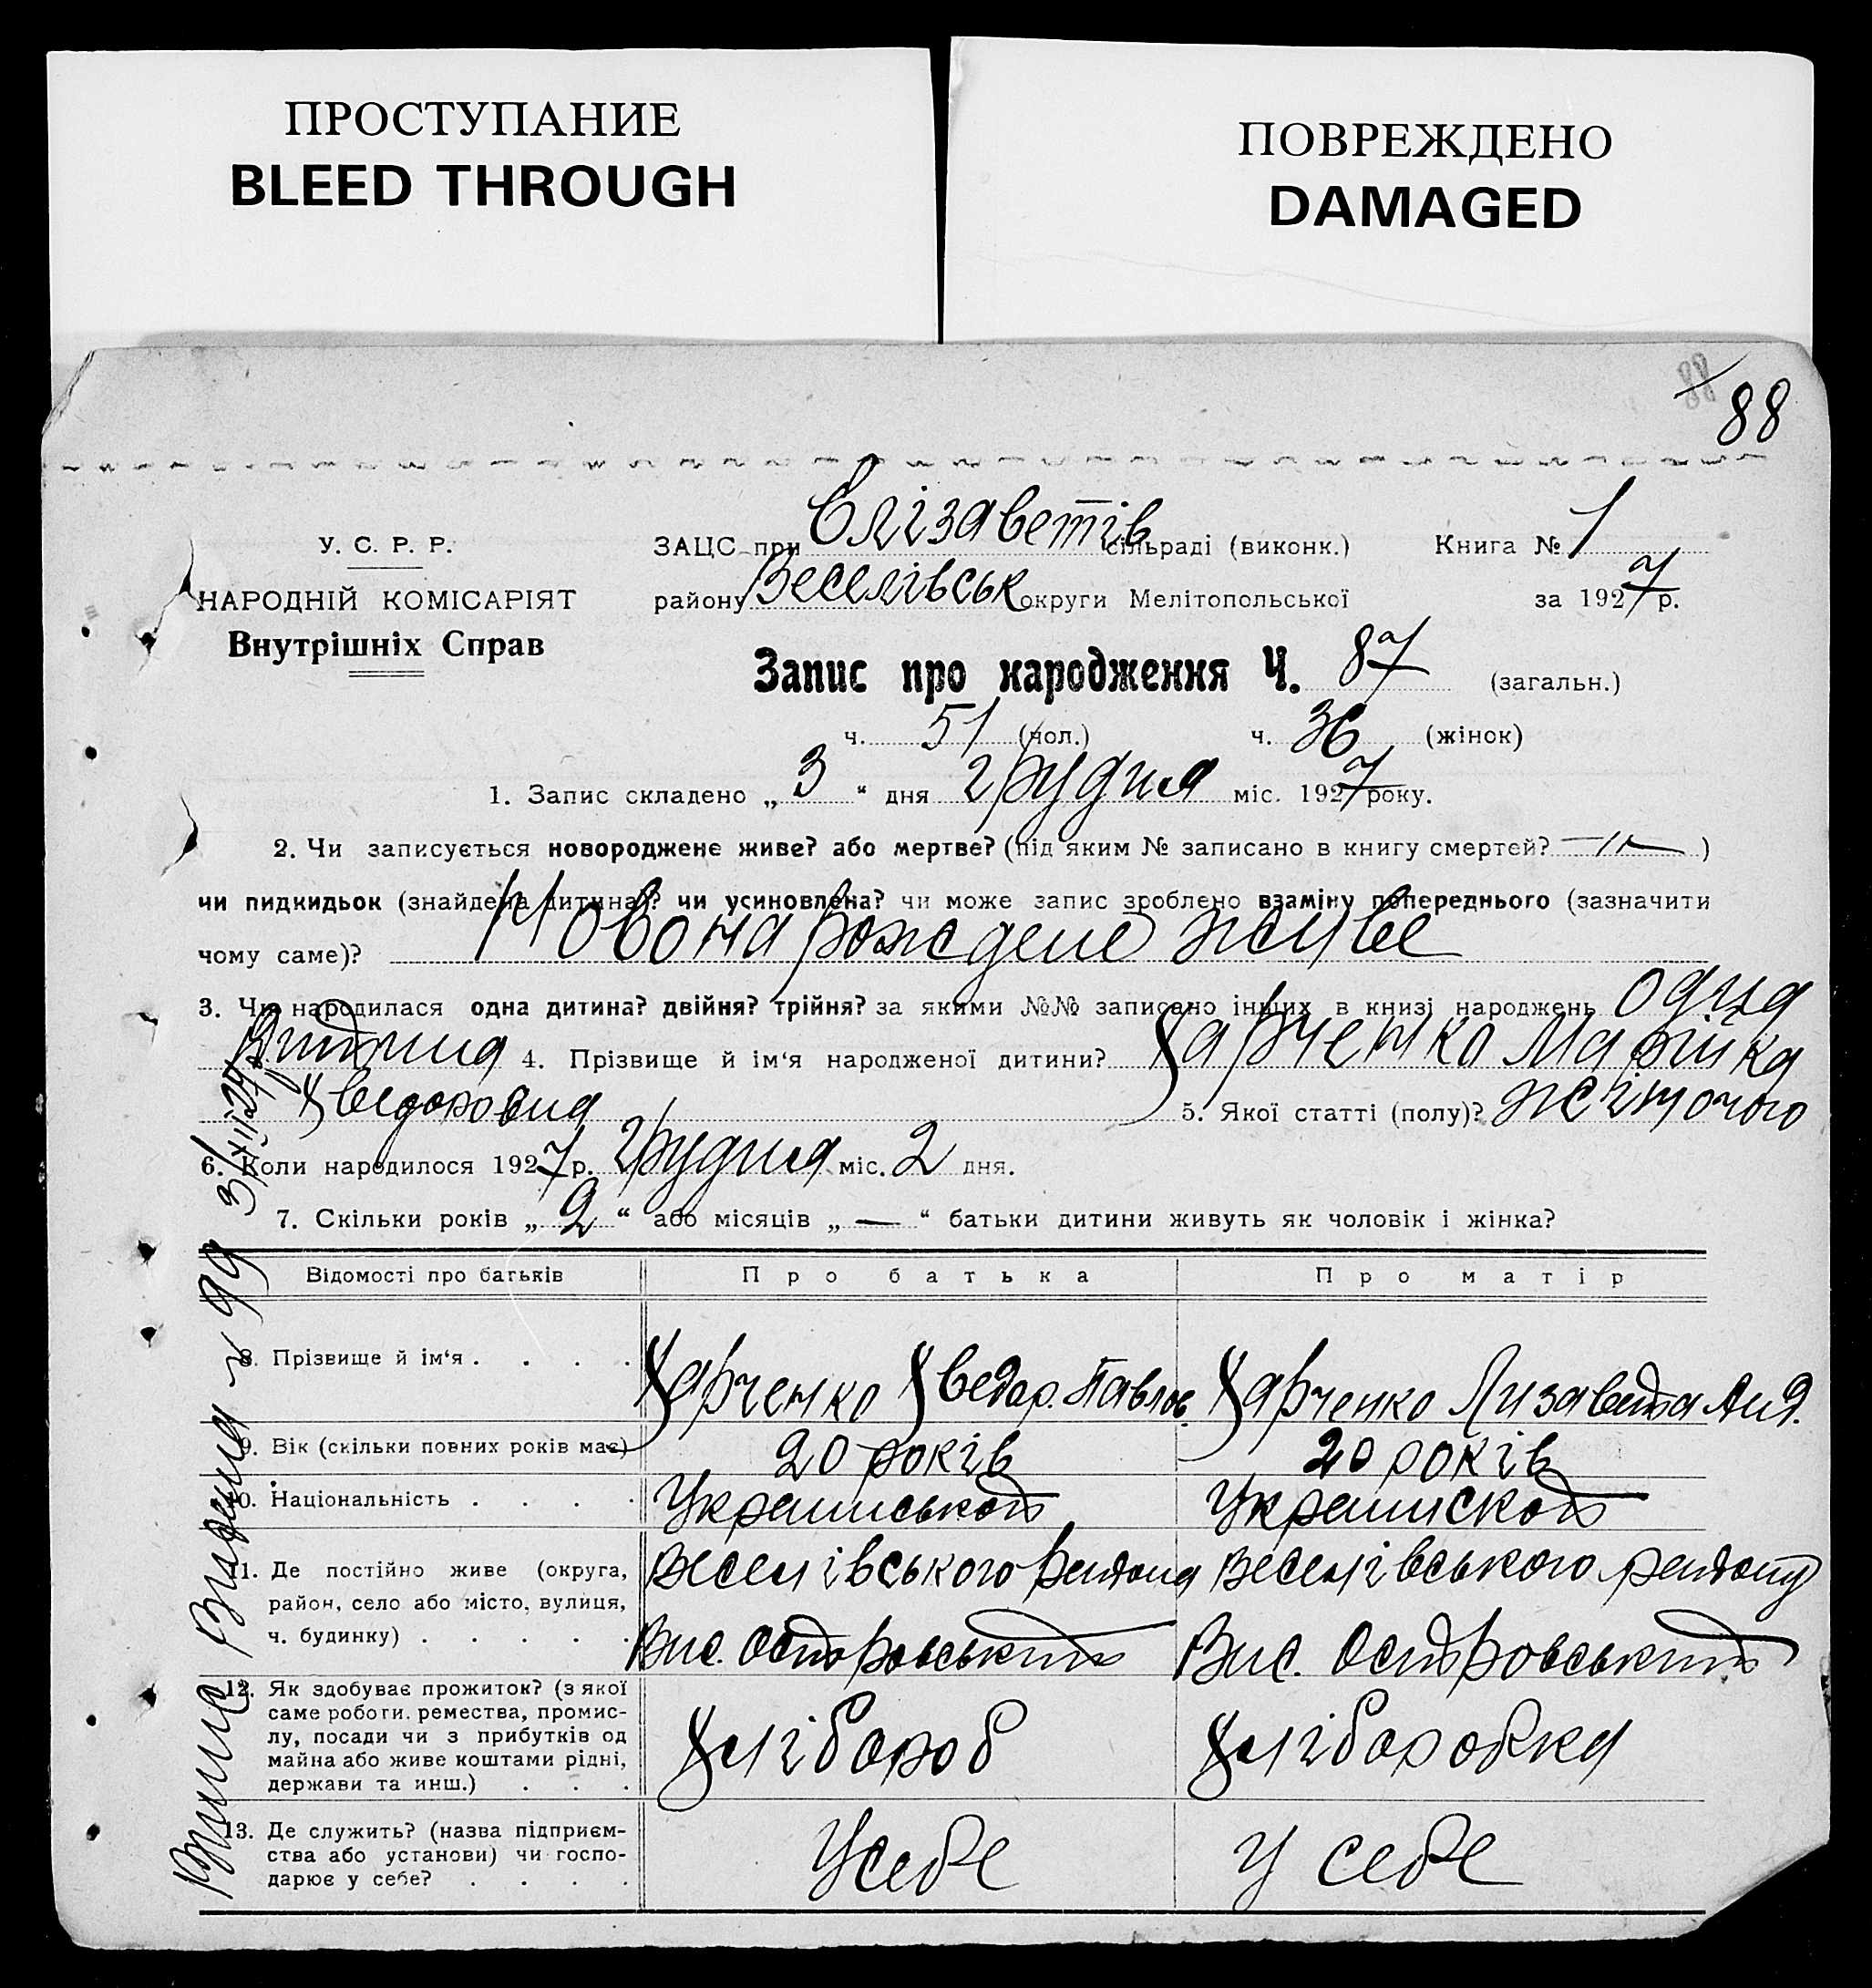 ПРОСТУПАНИЕ
BLEED THROUGH
ПОВРЕЖДЕНО
DAMAGED
88
88
У. С. Р. Р.
НАРОДНІЙ КОМІСАРІЯТ
Внутрішніх Справ
ЗАЦС при Єлізаветів сільраді (виконк.) Книга № 1
району Веселівськ округи Мелітопольської за 1927 р.
Запис про народження Ч. 87 (загальн.)
ч. 51 (чол.) ч. 36 (жінок)
1. Запис складено „3“ дня грудня міс. 1927 року.
2. Чи записується новороджене живе? або мертве? (під яким № записано в книгу смертей? —"— )
чи пидкидьок (знайдена дитина)? чи усиновлена? чи може запис зроблено взаміну попереднього (зазначити
чому саме)? Новонарождене живе
3. Чи народилася одна дитина? двійня? трійня? за якими №№ записано інших в книзі народжень одна
дитина 4. Прізвище й ім‘я народженої дитини? Харченко Марійка
Хведоровна 5. Якої статті (полу)? жіночого
6. Коли народилося 1927 р. грудня міс. 2 дня.
7. Скільки років „2“ або місяців „—“ батьки дитини живуть як чоловік і жінка?
Відомості про батьків Про батька Про матір
8. Прізвище й ім‘я . . . . Харченко Хведор. Павлов. Харченко Лизавета Анд.
9. Вік (скільки повних років має) 20 років 20 років
10. Національність . . . . Українського Українского
11. Де постійно живе (округа, район, село або місто, вулиця, ч. будинку) . . . . .
Веселівського района Вис. Островський
Веселівського району Вис. Островський
12. Як здобуває прожиток? (з якої саме роботи. ремества, промислу, посади чи з прибутків од майна або живе коштами рідні, держави та инш.) . . .
Хлібороб Хліборобка
13. Де служить? (назва підприємства або установи) чи господарює у себе? . . . .
У себе У себе
Випис Видана № 99 3/XII-27 р.